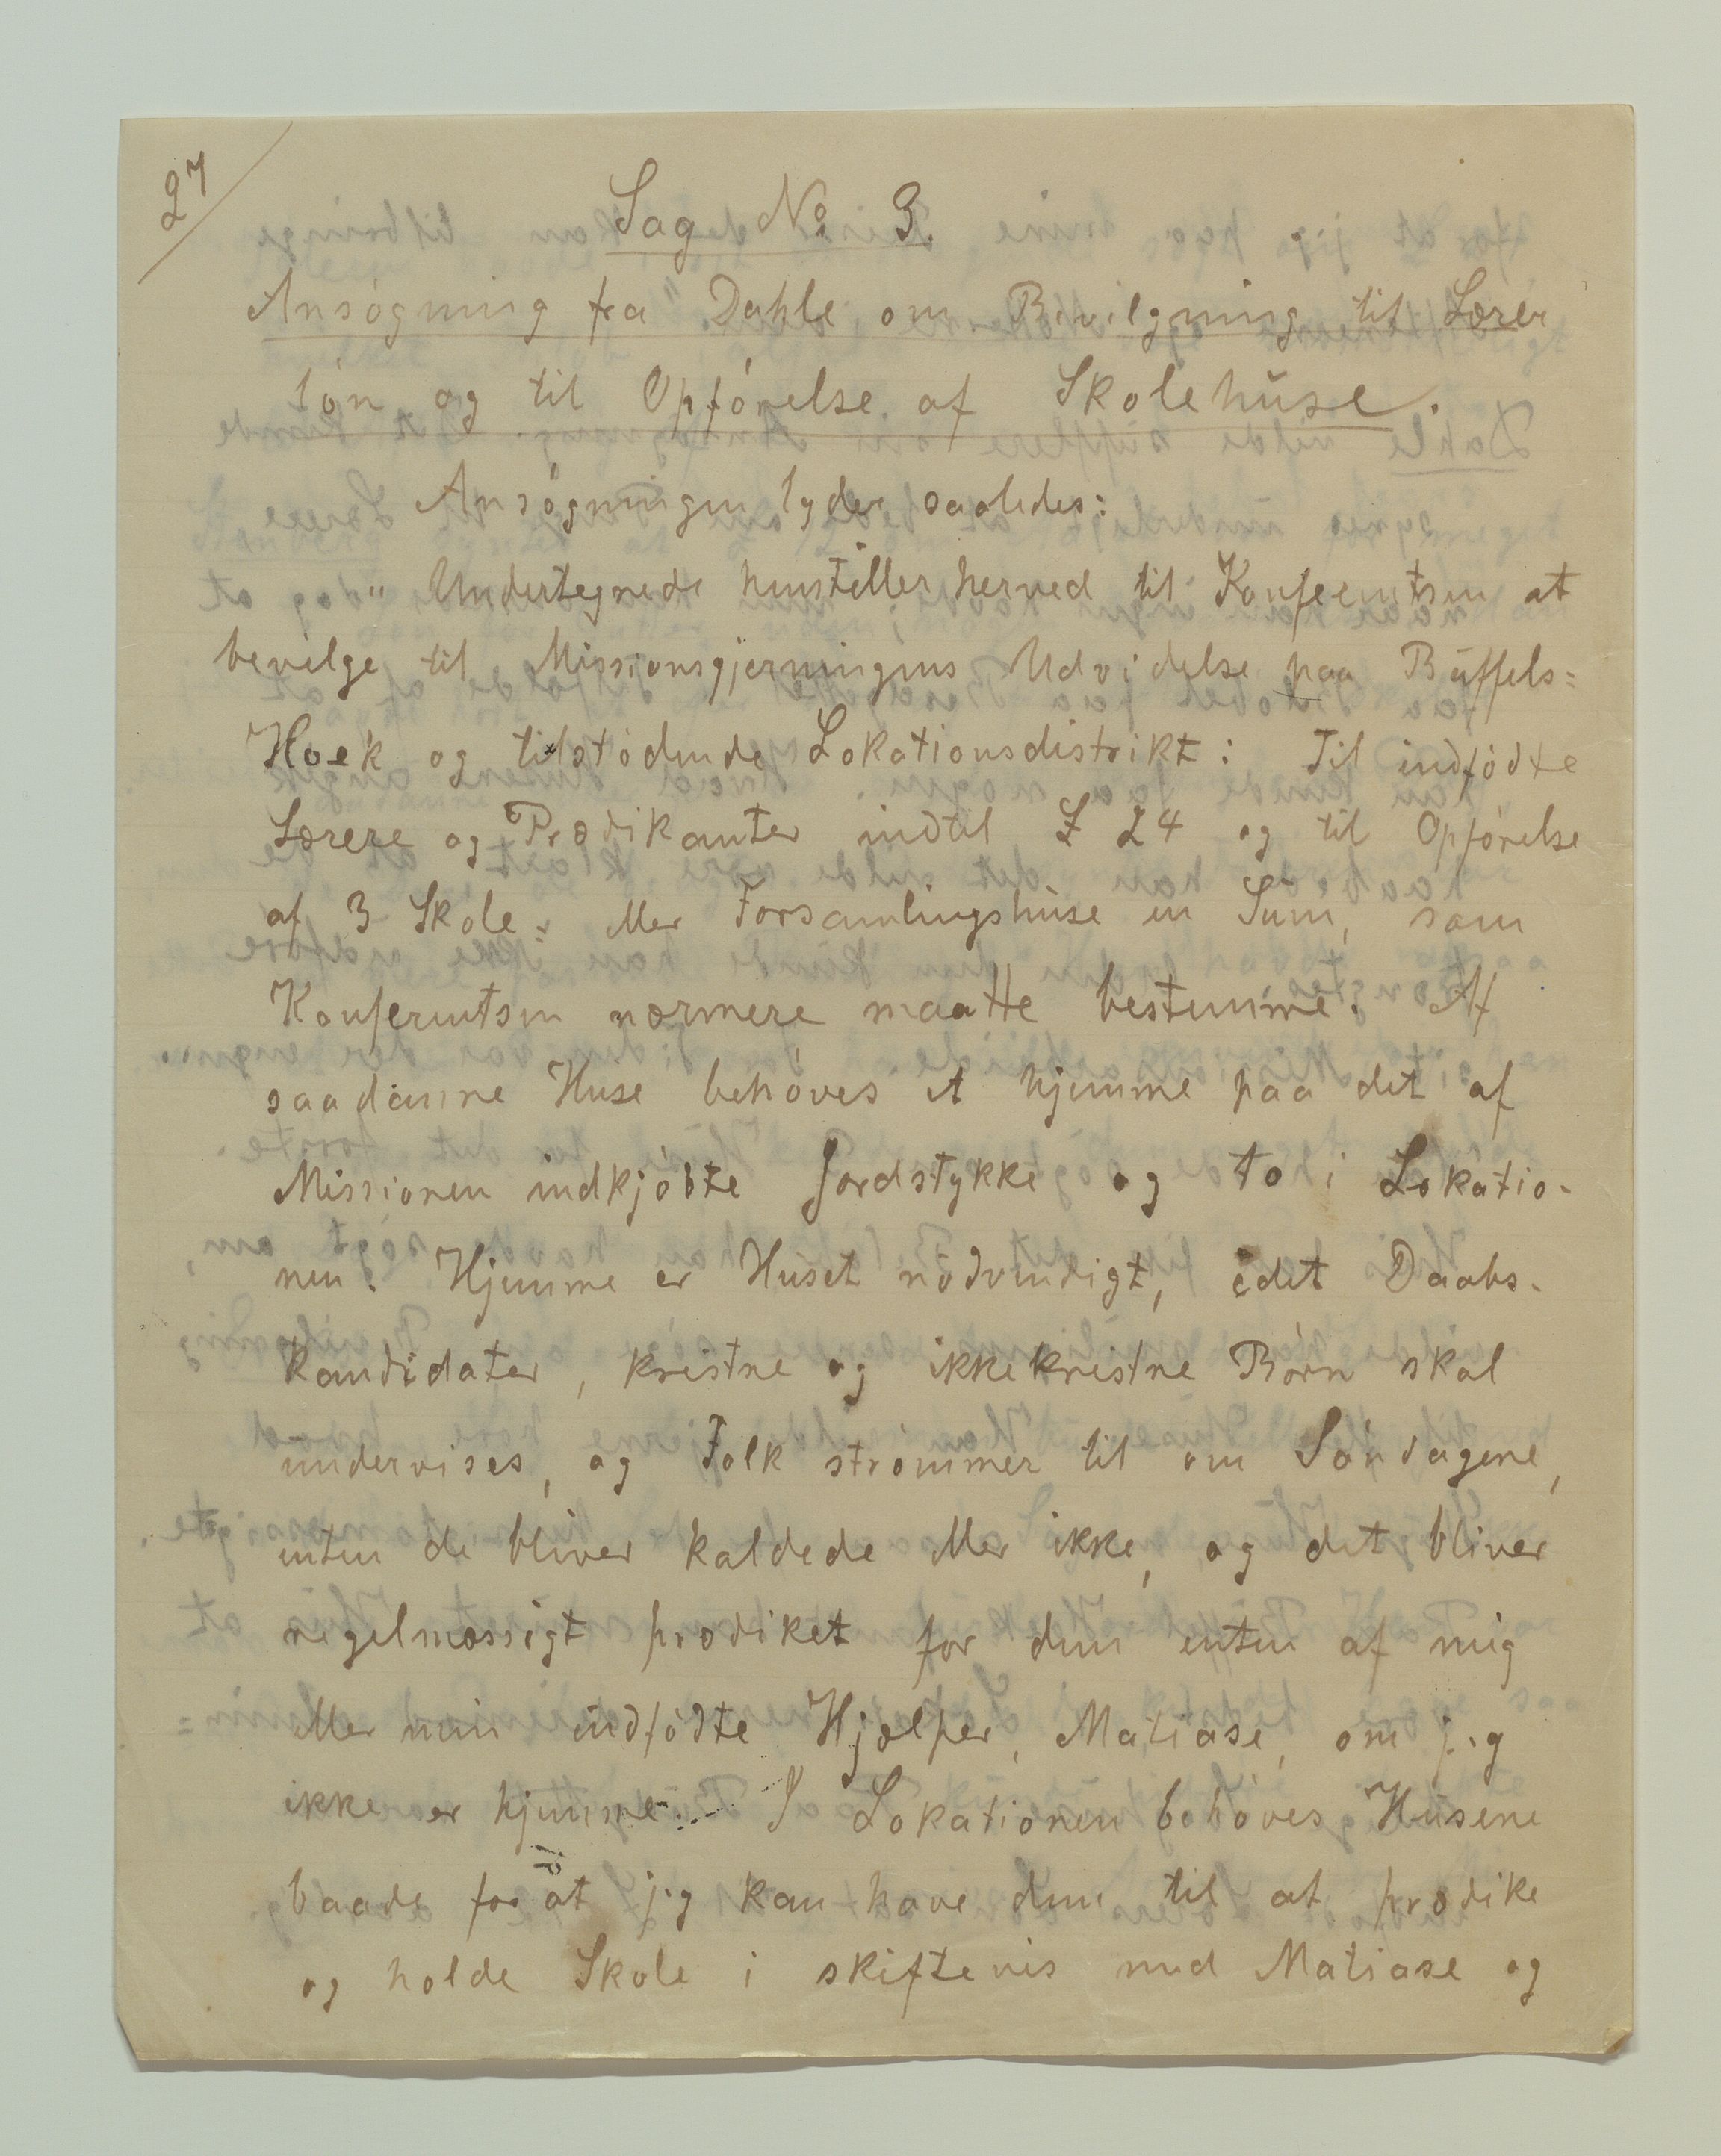 27
Sag No 3.
Ansøgning fra Dahle om Bevilgning til Lærer
løn og til Opførelse af Skolehuse.
Ansøgningen lyder saaledes:
"Undertegnede henstiller herved til Konferentsen at
bevilge til Missionsgjerningens Udvidelse paa Buffels=
Hoek og tilstødende Lokationsdistrikt: Til indfødte
Lærere og Prædikanter indtil £ 24 og til Opførelse
af 3 Skole= eller Forsamlingshuse en Sum, som
Konferentsen nærmere maatte bestemme. Af
saadanne Huse behøves et hjemme paa det af
Missionen indkjøbte Jordstykke og to i Lokatio-
nen. Hjemme er Huset nødvendigt, idet Daabs-
kandidater, kristne og ikkekristne Børn skal
undervises, og Folk strømmer til om Søndagene,
enten de bliver kaldede eller ikke, og det bliver
regelmæssigt prædiket for dem enten af mig
eller min indfødte Hjælper, Matiase, om jeg
ikke er hjemme. I Lokationen behøves Husene
baade for at jeg kan have dem til at prædike
og holde Skole i skiftevis med Matiase og